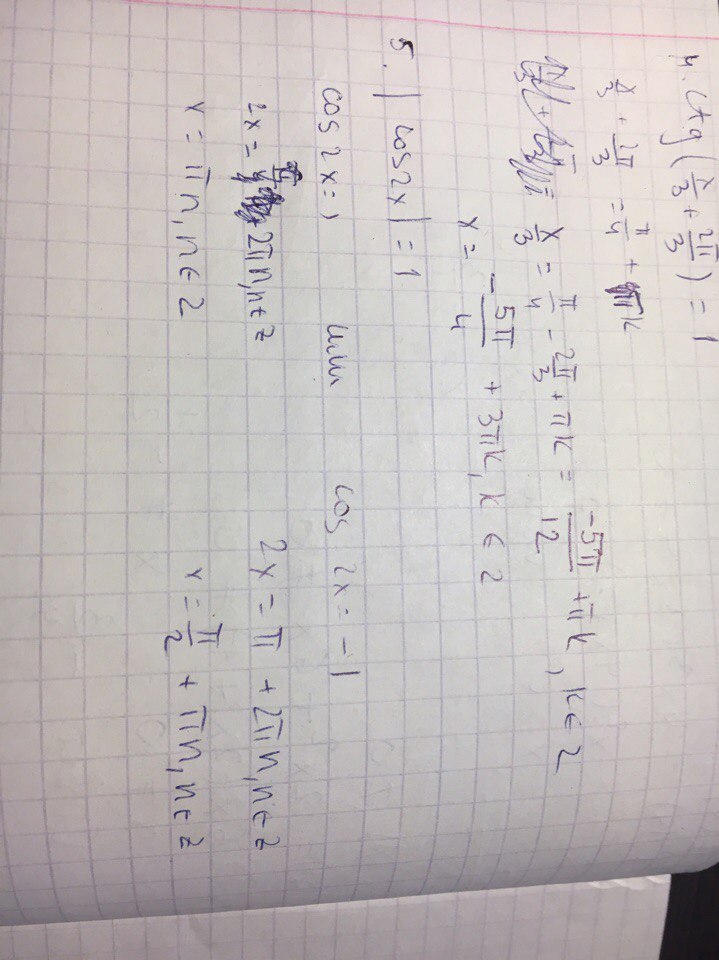 4. ctg(x/3 + 2π/3) = 1
x/3 + 2π/3 = π/4 + πk
x/3 = π/4 - 2π/3 + πk = -5π/12 + πk, k ∈ Z
x = -5π/4 + 3πk, k ∈ Z
5. |cos2x| = 1
cos2x = 1 или cos2x = -1
2x = 2πn, n ∈ Z 2x = π + 2πn, n ∈ Z
x = πn, n ∈ Z x = π/2 + πn, n ∈ Z